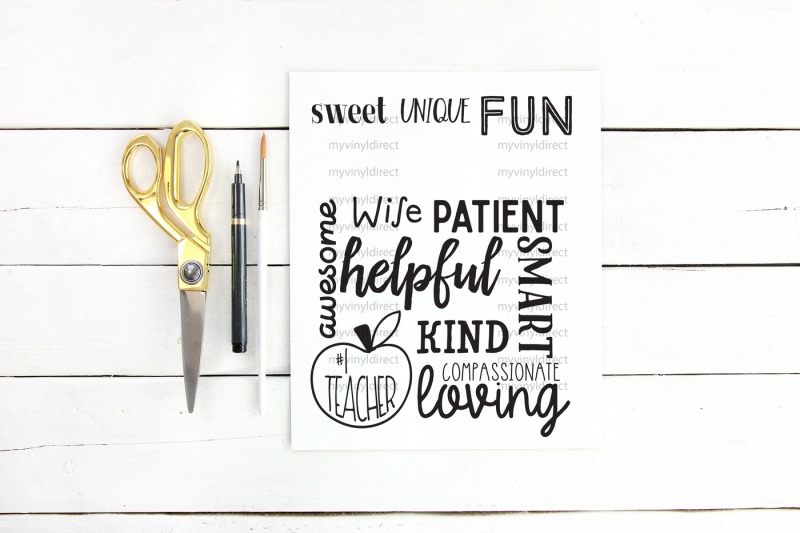 sweet UNIQUE FUN
myvinyldirect myvinyldirect
myvinyldirect myvinyldirect
myvinyldirect myvinyldirect
awesome
Wise PATIENT
helpful
SMART
KIND
COMPASSIONATE
loving
#1
TEACHER